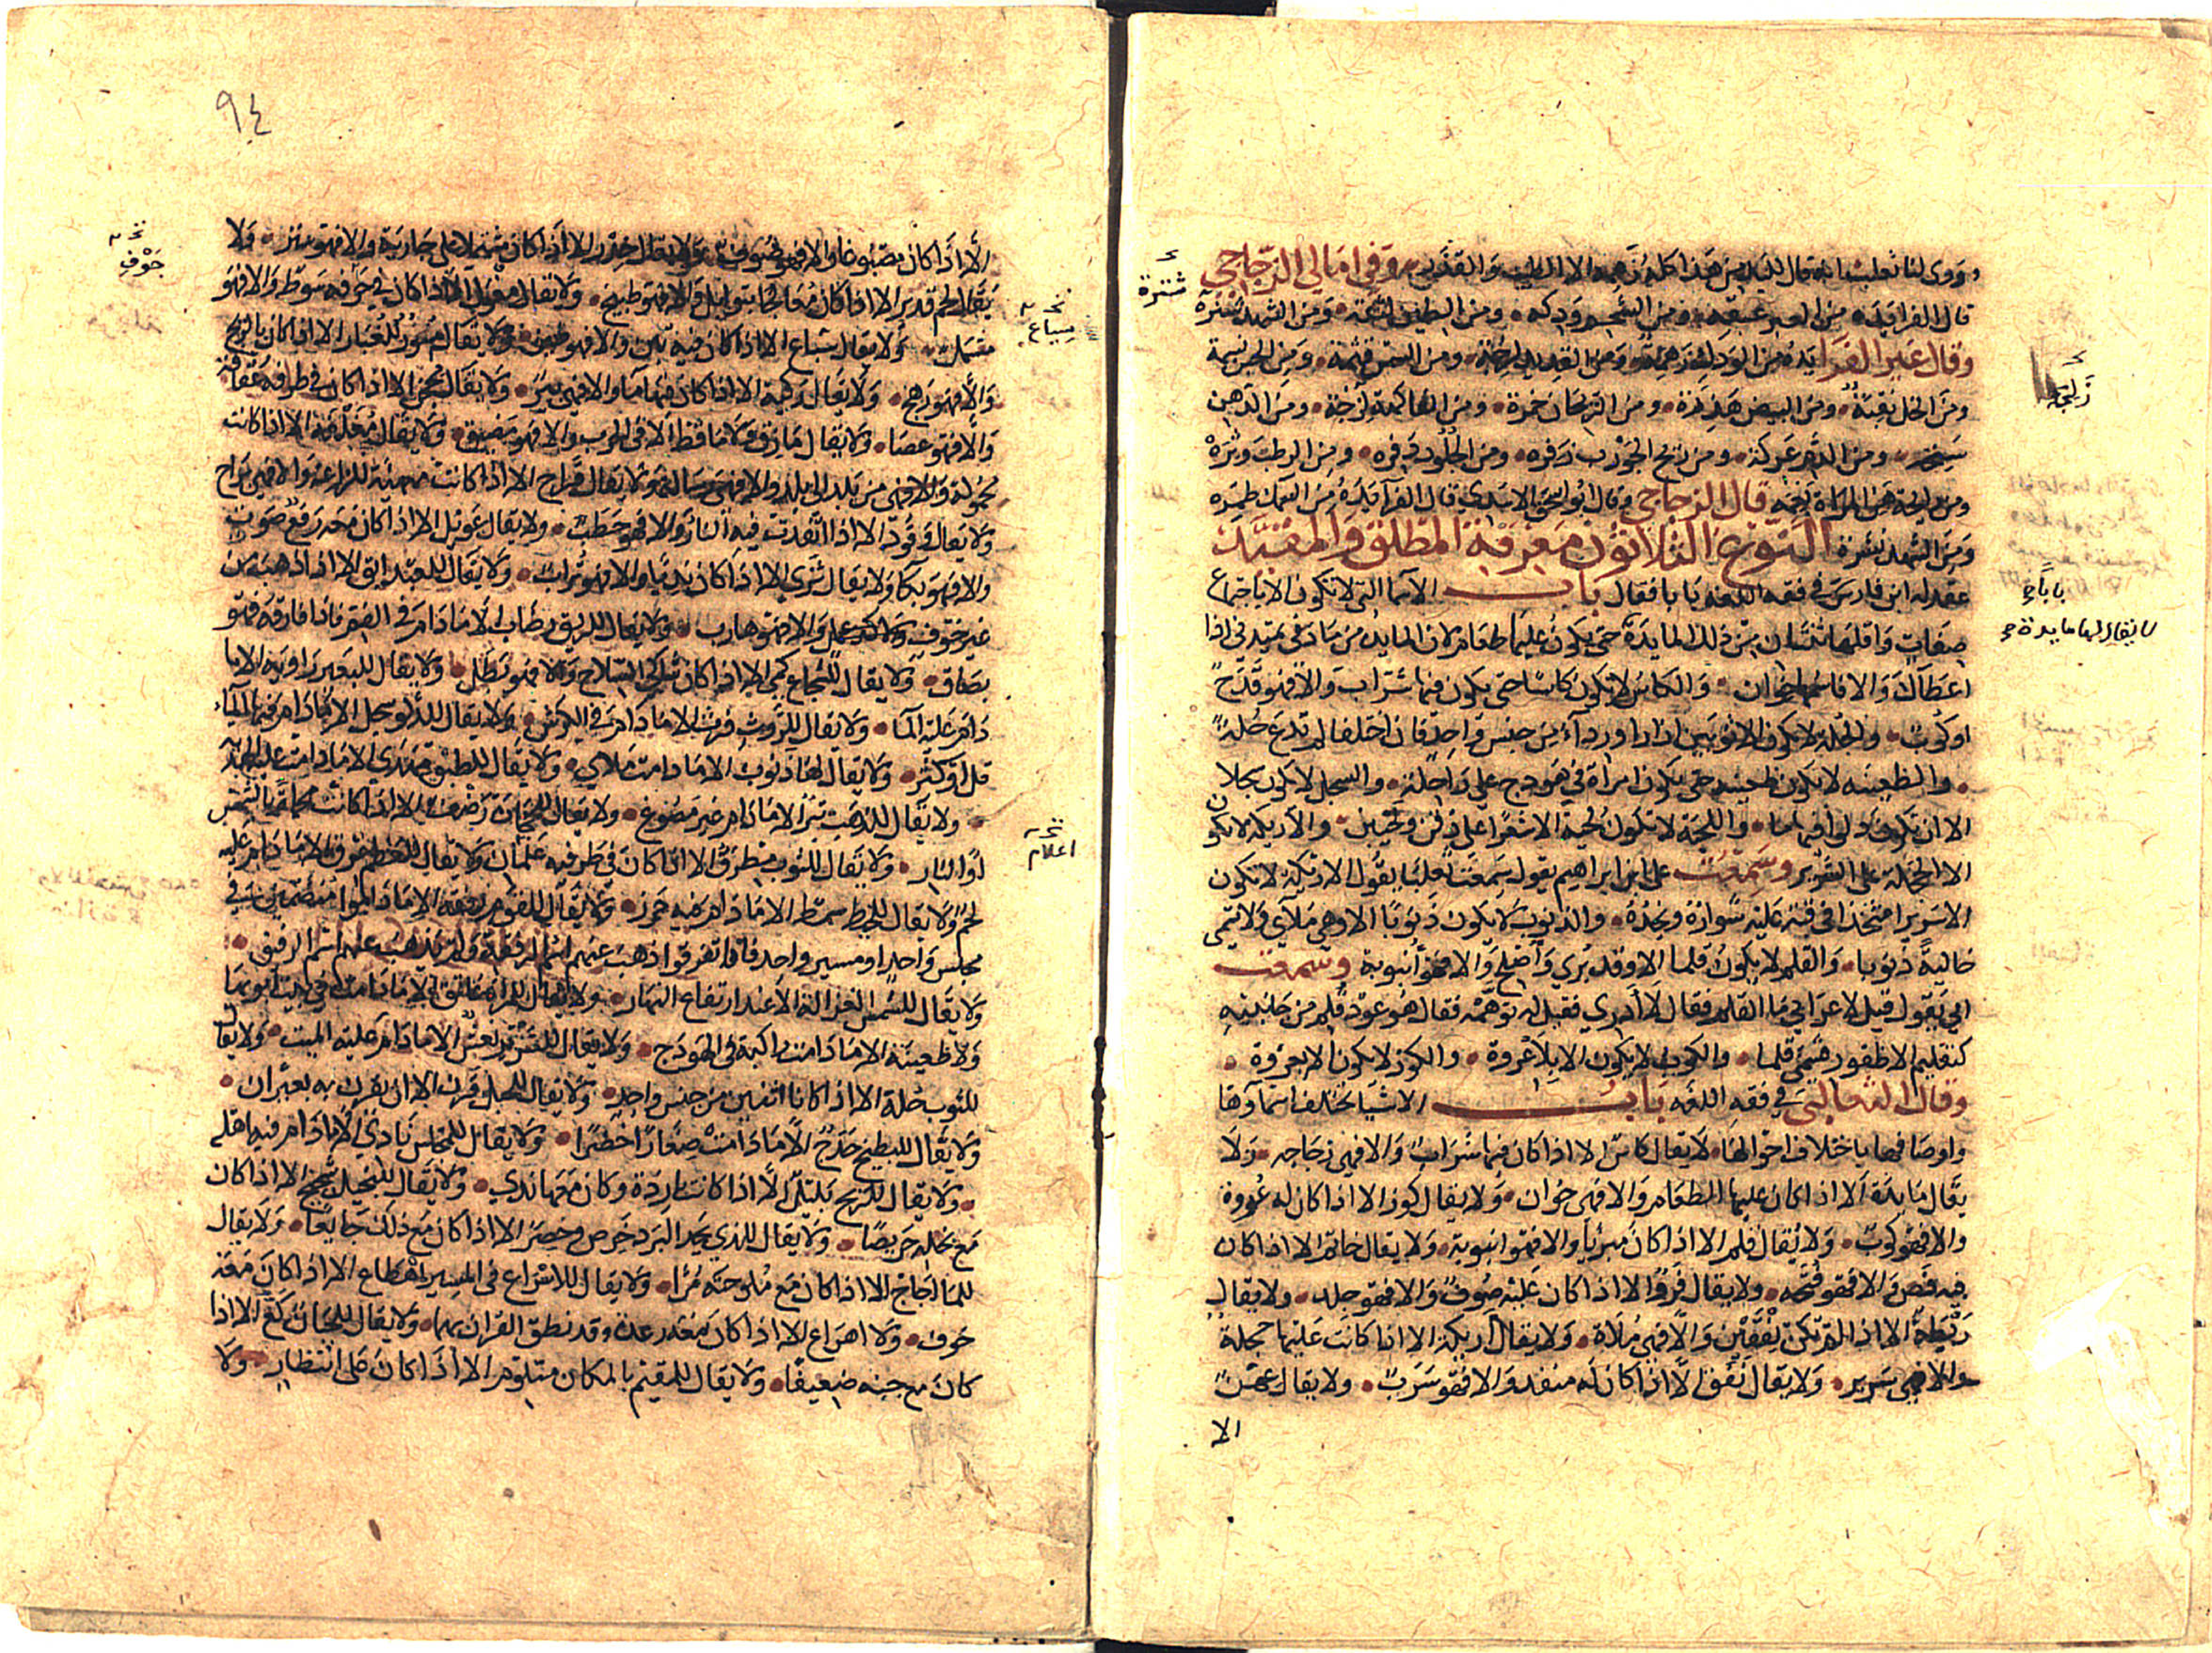 وروى لنا ثعلب انه قال ليس هذا كله زهمه الا الطيب والقذر وفي امالي الزجاجي
قال الفرا يده من العنبر عبقه ومن الشحم ودكه ومن الطين لثقة ومن الشهد شترة
وقال غير الفرا يده من الودك زهمة ومن القديد ومن السمن قنمة ومن الجبن نسمة
ومن الخل نقبة ومن البيض هذرة ومن الريحان خمرة ومن الفاكهة لزجة ومن الدهن
سنخة ومن الدم عركة ومن ريح الجورب زفره ومن الجلود دفره ومن الرطب وتره
ومن رايحة هن المراة بغمه قال الزجاجي وقال ابو اسحق الاسدي قال الفرا يده من السمك طمره
ومن الشهد نشرة النوع الثلاثون معرفة المطلق والمقيد
عقد له ابن فارس في فقه اللغه بابا فقال باب الاسما التي لا تكون الا باجتماع
صفات واقلها ثنتان من ذلك المايدة حتى يكون عليها طعام لان المايده من مادني يميدني اذا
اعطاك والا فاسمها خوان والكاس لا تكون كاسا حتى يكون فيها شراب والا فهو قدح
او كوب والحلة لا تكون الا ثوبين ازار ورداء من جنس واحد فان اختلفا لم تدع حلة
والظعينه لا تكون ظعينه حتى تكون امراة في هودج على راحلة والسجل لا تكون سجلا
الا ان تكون دلوا فيها ما واللحية لا تكون لحية الا شعرا على ذقن ولحيين والاريكه لا تكون
الا الحجلة على السرير وسمعت على ابن ابراهيم يقول سمعت ثعلبا يقول الاريكة لا تكون
الا سريرا متخذا في قبة عليه شواره ونجده والذنوب لا يكون ذنوبا الا وهي ملآى ولا تسمى
خالية ذنوبا والقلم لا يكون قلما الا وقد بري واصلح والا فهو انبوبة وسمعت
ابي يقول قيل لاعرابي ما القلم فقال لا ادري فقيل له توهمه فقال هو عود قلم من جانبيه
كتقليم الاظفور فسمي قلما والكوب لا يكون الا بلا عروة والكوز لا يكون الا بعروة
وقال الثعالبي في فقه اللغه باب الاشيا تختلف اسماوها
واوصافها باختلاف احوالها لا يقال كاس الا اذا كان فيها شراب والا فهي زجاجه ولا
يقال مايدة الا اذا كان عليها الطعام والا فهي خوان ولا يقال كوز الا اذا كان له عروة
والا فهو كوب ولا يقال قلم الا اذا كان مبريا والا فهو انبوبة ولا يقال خاتم الا اذا كان
فيه فص والا فهو فتحه ولا يقال فرو الا اذا كان عليه صوف والا فهو جلد ولا يقال
ريطة الا اذا لم تكن لفقين والا فهي ملاة ولا يقال اريكة الا اذا كانت عليها حجلة
والا فهي سرير ولا يقال نفق الا اذا كان له منفذ والا فهو سرب ولا يقال عهن
الا
شترة
بابا
لا يقال لها مايدة
٩٤
الا اذا كان مصبوغا والا فهو صوف ولا يقال خدر الا اذا كان مشتملا على جارية والا فهو ستر ولا
يقال لحم قدير الا اذا كان معالجا بتوابل والا فهو طبيخ ولا يقال مغول الا اذا كان في جوفه سوط والا فهو
مشمل ولا يقال سياع الا اذا كان فيه تبن والا فهو طين ولا يقال مور للغبار الا اذا كان بالريح
والا فهو رهج ولا يقال ركية الا اذا كان فيها ما والا فهي بير ولا يقال محجن الا اذا كان في طرفه عقافة
والا فهو عصا ولا يقال مازق ولا ماقط الا في الحرب والا فهو مضيق ولا يقال مغلغلة الا اذا كانت
محمولة من بلد الى بلد والا فهي رسالة ولا يقال قراح الا اذا كانت مهيئة للزراعة والا فهي براح
ولا يقال وقود الا اذا اتقدت فيه النار والا فهو حطب ولا يقال عويل الا اذا كان معه رفع صوت
والا فهو بكا ولا يقال ثرى الا اذا كان نديا والا فهو تراب ولا يقال للعبد ابق الا اذا ذهب من
غير خوف ولا كد عمل والا فهو هارب ولا يقال للريق رضاب الا ما دام في الفم فاذا فارقه فهو
بصاق ولا يقال للشجاع كمي الا اذا كان شاكي السلاح والا فهو بطل ولا يقال للبعير راوية الا ما
دام عليه الما ولا يقال للروث فرث الا ما دام في الكرش ولا يقال للدلو سجل الا ما دام فيها الماء
قل او كثر ولا يقال لها ذنوب الا ما دامت ملاى ولا يقال للطبق مهدى الا ما دامت عليه الهدية
ولا يقال للذهب تبر الا ما دام غير مصوغ ولا يقال للحجارة رضف الا اذا كانت محماة بالشمس
او النار ولا يقال للثوب مطرف الا اذا كان في طرفيه علمان ولا يقال للعظم عرق الا ما دام عليه
لحم ولا يقال للخيط سمط الا ما دام فيه خرز ولا يقال للقوم رفقة الا ما داموا منضمين في
مجلس واحد او مسير واحد فاذا تفرقوا ذهب عنهم اسم الرفقة ولم يذهب عنهم اسم الرفيق
ولا يقال للشمس الغزالة الا عند ارتفاع النهار ولا يقال للمراة عاتق الا ما دامت في بيت ابويها
ولا ظعينة الا ما دامت راكبة في الهودج ولا يقال للسرير نعش الا ما دام عليه الميت ولا يقال
للثوب حلة الا اذا كانا اثنين من جنس واحد ولا يقال للحبل قرن الا ان يقرن به بعيران
ولا يقال للبطيخ حدج الا ما دامت صغارا خضرا ولا يقال للمجلس نادي الا ما دام فيه اهله
ولا يقال للريح بليل الا اذا كانت باردة وكان معها ندى ولا يقال للبخيل شحيح الا اذا كان
مع بخله حريصا ولا يقال للذي يجد البرد خرص وخصر الا اذا كان مع ذلك جايعا ولا يقال
للما اجاج الا اذا كان مع ملوحته مرا ولا يقال للاسراع في المسير اهطاع الا اذا كان معه
خوف ولا اهراع الا اذا كان معه رعدة وقد نطق القران بهما ولا يقال للجبان كع الا اذا
كان مع جبنه ضعيفا ولا يقال للمقيم بالمكان متلوم الا اذا كان على انتظار ولا
جوف
سياع
اعلام